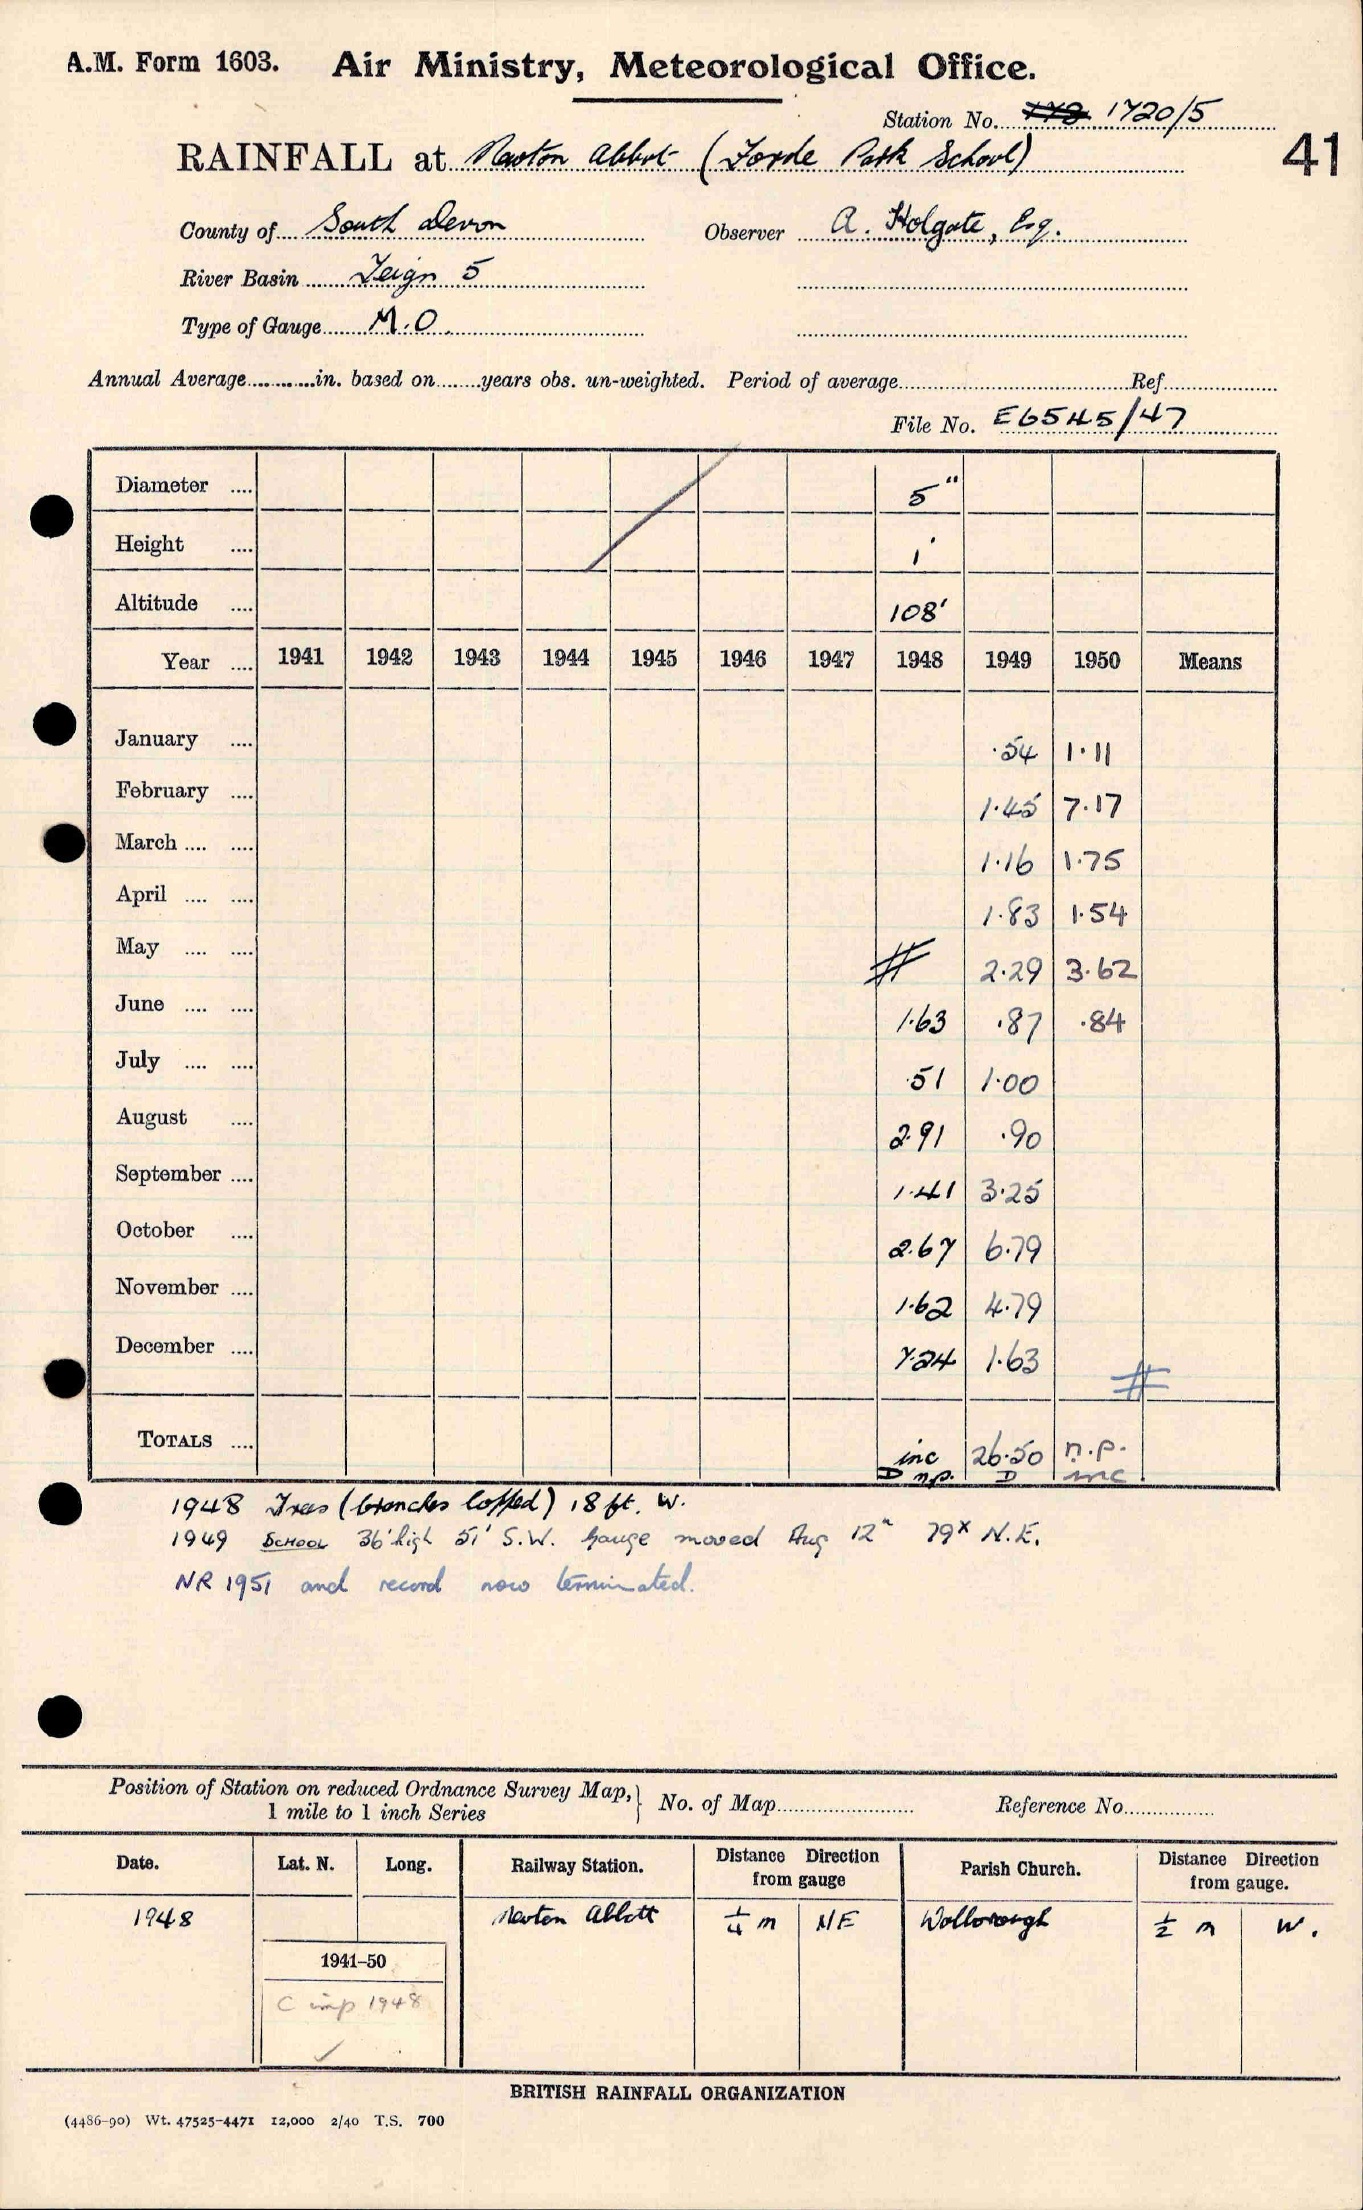 A.M. Form 1603. Air Ministry, Meteorological Office.
Station No. 1720/5
41
RAINFALL at Newton Abbot (Forde Park School)
County of South Devon Observer A. Holgate, Esq.
River Basin Teign 5
Type of Gauge M.O.
Annual Average............in. based on........years obs. un-weighted. Period of average........Ref........
File No. E6545/47
Diameter .... 5"
Height .... 1'
Altitude .... 108'
Year .... 1941 1942 1943 1944 1945 1946 1947 1948 1949 1950 Means
January .... .54 1.11
February .... 1.45 7.17
March .... .... 1.16 1.75
April .... .... 1.83 1.54
May .... .... # 2.29 3.62
June .... .... 1.63 .87 .84
July .... .... .51 1.00
August .... 2.91 .90
September .... 1.41 3.25
October .... 2.67 6.79
November .... 1.62 4.79
December .... 7.24 1.63 #
TOTALS .... inc 26.50 n.p.
D n.p. D inc
1948 Trees (branches lopped) 18 ft. W.
1949 SCHOOL 36' high 51' S.W. Gauge moved Aug 12" 79x N.E.
NR 1951 and record now terminated.
Position of Station on reduced Ordnance Survey Map,
1 mile to 1 inch Series } No. of Map........ Reference No........
Date. Lat. N. Long. Railway Station. Distance Direction from gauge Parish Church. Distance Direction from gauge.
1948 Newton Abbott 1/4 m NE Wolborough 1/2 m W.
1941-50
C imp 1948
✓
BRITISH RAINFALL ORGANIZATION
(4486-90) Wt. 47525-4471 12,000 2/40 T.S. 700